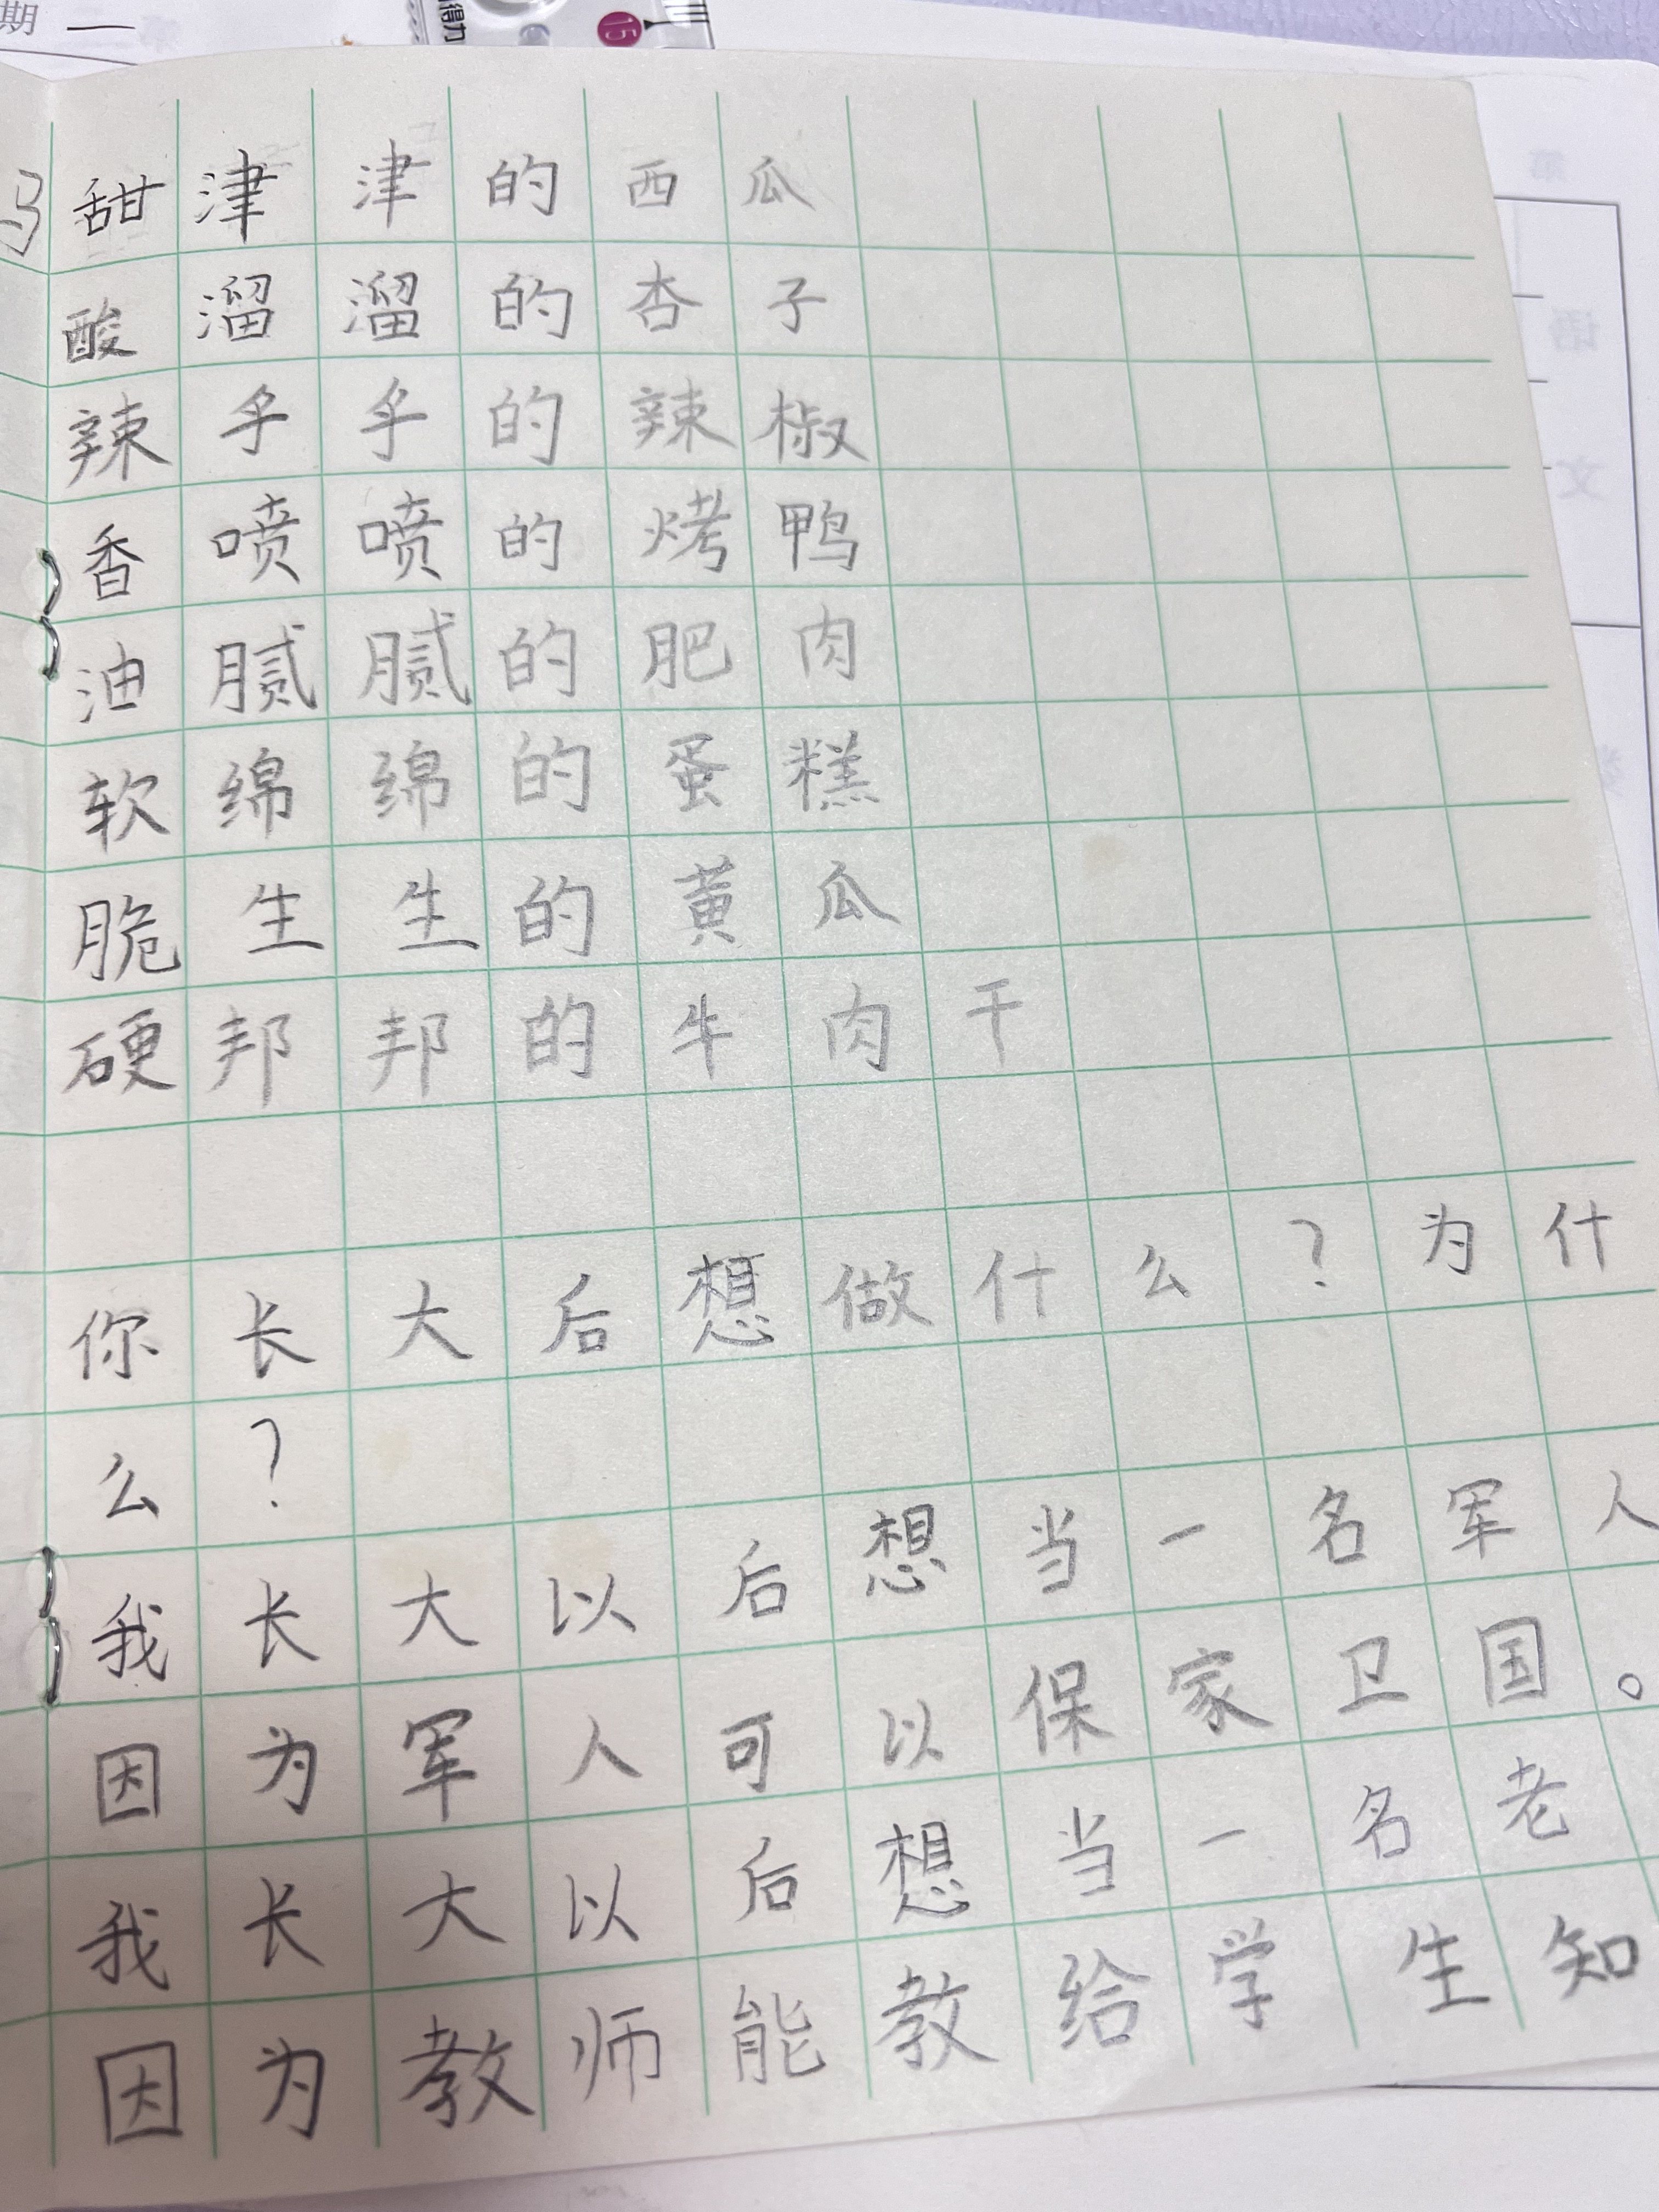 期
得力
15
甜津津的西瓜
酸溜溜的杏子
辣乎乎的辣椒
香喷喷的烤鸭
油腻腻的肥肉
软绵绵的蛋糕
脆生生的黄瓜
硬邦邦的牛肉干
你长大后想做什么?为什
么?
我长大以后想当一名军人
因为军人可以保家卫国。
我长大以后想当一名老
因为教师能教给学生知